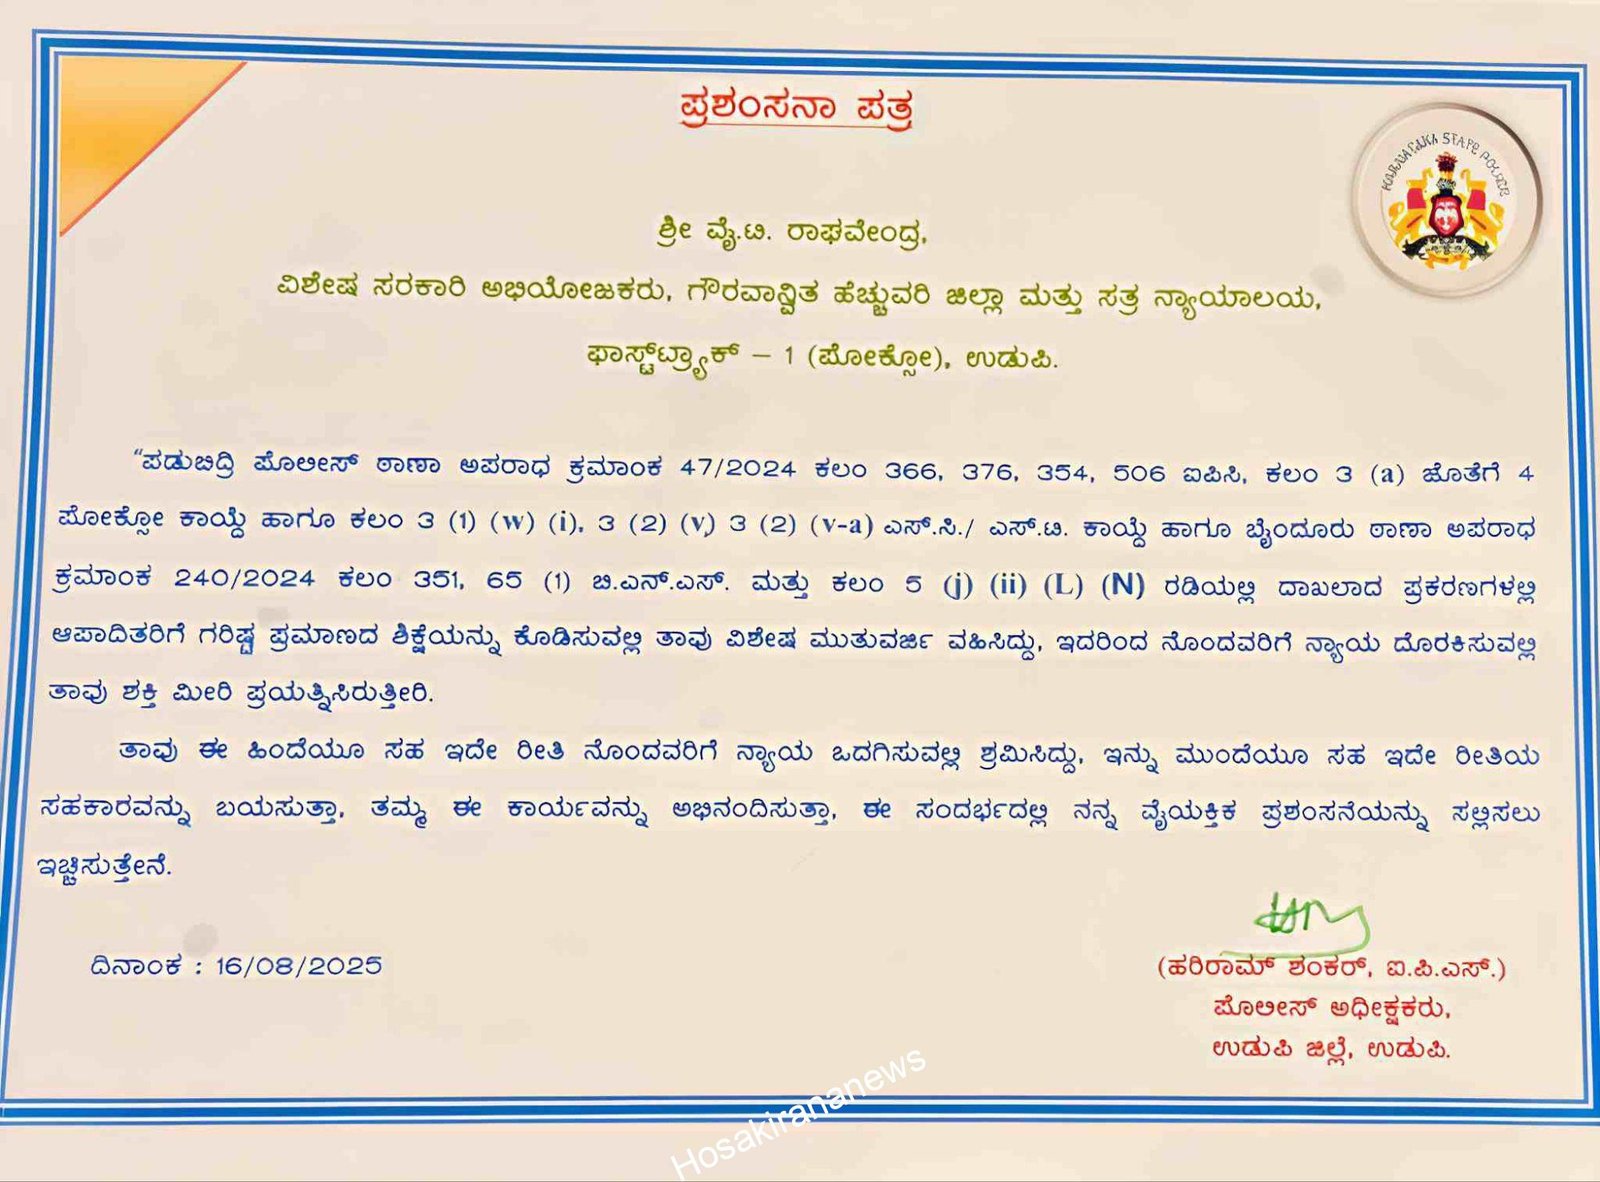 ಪ್ರಶಂಸನಾ ಪತ್ರ
KARNATAKA STATE POLICE
ಶ್ರೀ ವೈ.ಟಿ. ರಾಘವೇಂದ್ರ,
ವಿಶೇಷ ಸರಕಾರಿ ಅಭಿಯೋಜಕರು, ಗೌರವಾನ್ವಿತ ಹೆಚ್ಚುವರಿ ಜಿಲ್ಲಾ ಮತ್ತು ಸತ್ರ ನ್ಯಾಯಾಲಯ,
ಫಾಸ್ಟ್‌ಟ್ರ್ಯಾಕ್ – 1 (ಪೋಕ್ಸೋ), ಉಡುಪಿ.
“ಪಡುಬಿದ್ರಿ ಪೊಲೀಸ್ ಠಾಣಾ ಅಪರಾಧ ಕ್ರಮಾಂಕ 47/2024 ಕಲಂ 366, 376, 354, 506 ಐಪಿಸಿ, ಕಲಂ 3 (a) ಜೊತೆಗೆ 4
ಪೋಕ್ಸೋ ಕಾಯ್ದೆ ಹಾಗೂ ಕಲಂ 3 (1) (w) (i), 3 (2) (v) 3 (2) (v-a) ಎಸ್.ಸಿ./ ಎಸ್.ಟಿ. ಕಾಯ್ದೆ ಹಾಗೂ ಬೈಂದೂರು ಠಾಣಾ ಅಪರಾಧ
ಕ್ರಮಾಂಕ 240/2024 ಕಲಂ 351, 65 (1) ಬಿ.ಎನ್.ಎಸ್. ಮತ್ತು ಕಲಂ 5 (j) (ii) (L) (N) ರಡಿಯಲ್ಲಿ ದಾಖಲಾದ ಪ್ರಕರಣಗಳಲ್ಲಿ
ಆಪಾದಿತರಿಗೆ ಗರಿಷ್ಟ ಪ್ರಮಾಣದ ಶಿಕ್ಷೆಯನ್ನು ಕೊಡಿಸುವಲ್ಲಿ ತಾವು ವಿಶೇಷ ಮುತುವರ್ಜಿ ವಹಿಸಿದ್ದು, ಇದರಿಂದ ನೊಂದವರಿಗೆ ನ್ಯಾಯ ದೊರಕಿಸುವಲ್ಲಿ
ತಾವು ಶಕ್ತಿ ಮೀರಿ ಪ್ರಯತ್ನಿಸಿರುತ್ತೀರಿ.
ತಾವು ಈ ಹಿಂದೆಯೂ ಸಹ ಇದೇ ರೀತಿ ನೊಂದವರಿಗೆ ನ್ಯಾಯ ಒದಗಿಸುವಲ್ಲಿ ಶ್ರಮಿಸಿದ್ದು, ಇನ್ನು ಮುಂದೆಯೂ ಸಹ ಇದೇ ರೀತಿಯ
ಸಹಕಾರವನ್ನು ಬಯಸುತ್ತಾ, ತಮ್ಮ ಈ ಕಾರ್ಯವನ್ನು ಅಭಿನಂದಿಸುತ್ತಾ, ಈ ಸಂದರ್ಭದಲ್ಲಿ ನನ್ನ ವೈಯಕ್ತಿಕ ಪ್ರಶಂಸನೆಯನ್ನು ಸಲ್ಲಿಸಲು
ಇಚ್ಚಿಸುತ್ತೇನೆ.
ದಿನಾಂಕ : 16/08/2025
(ಹರಿರಾಮ್ ಶಂಕರ್, ಐ.ಪಿ.ಎಸ್.)
ಪೊಲೀಸ್ ಅಧೀಕ್ಷಕರು,
ಉಡುಪಿ ಜಿಲ್ಲೆ, ಉಡುಪಿ.
Hosakirananews